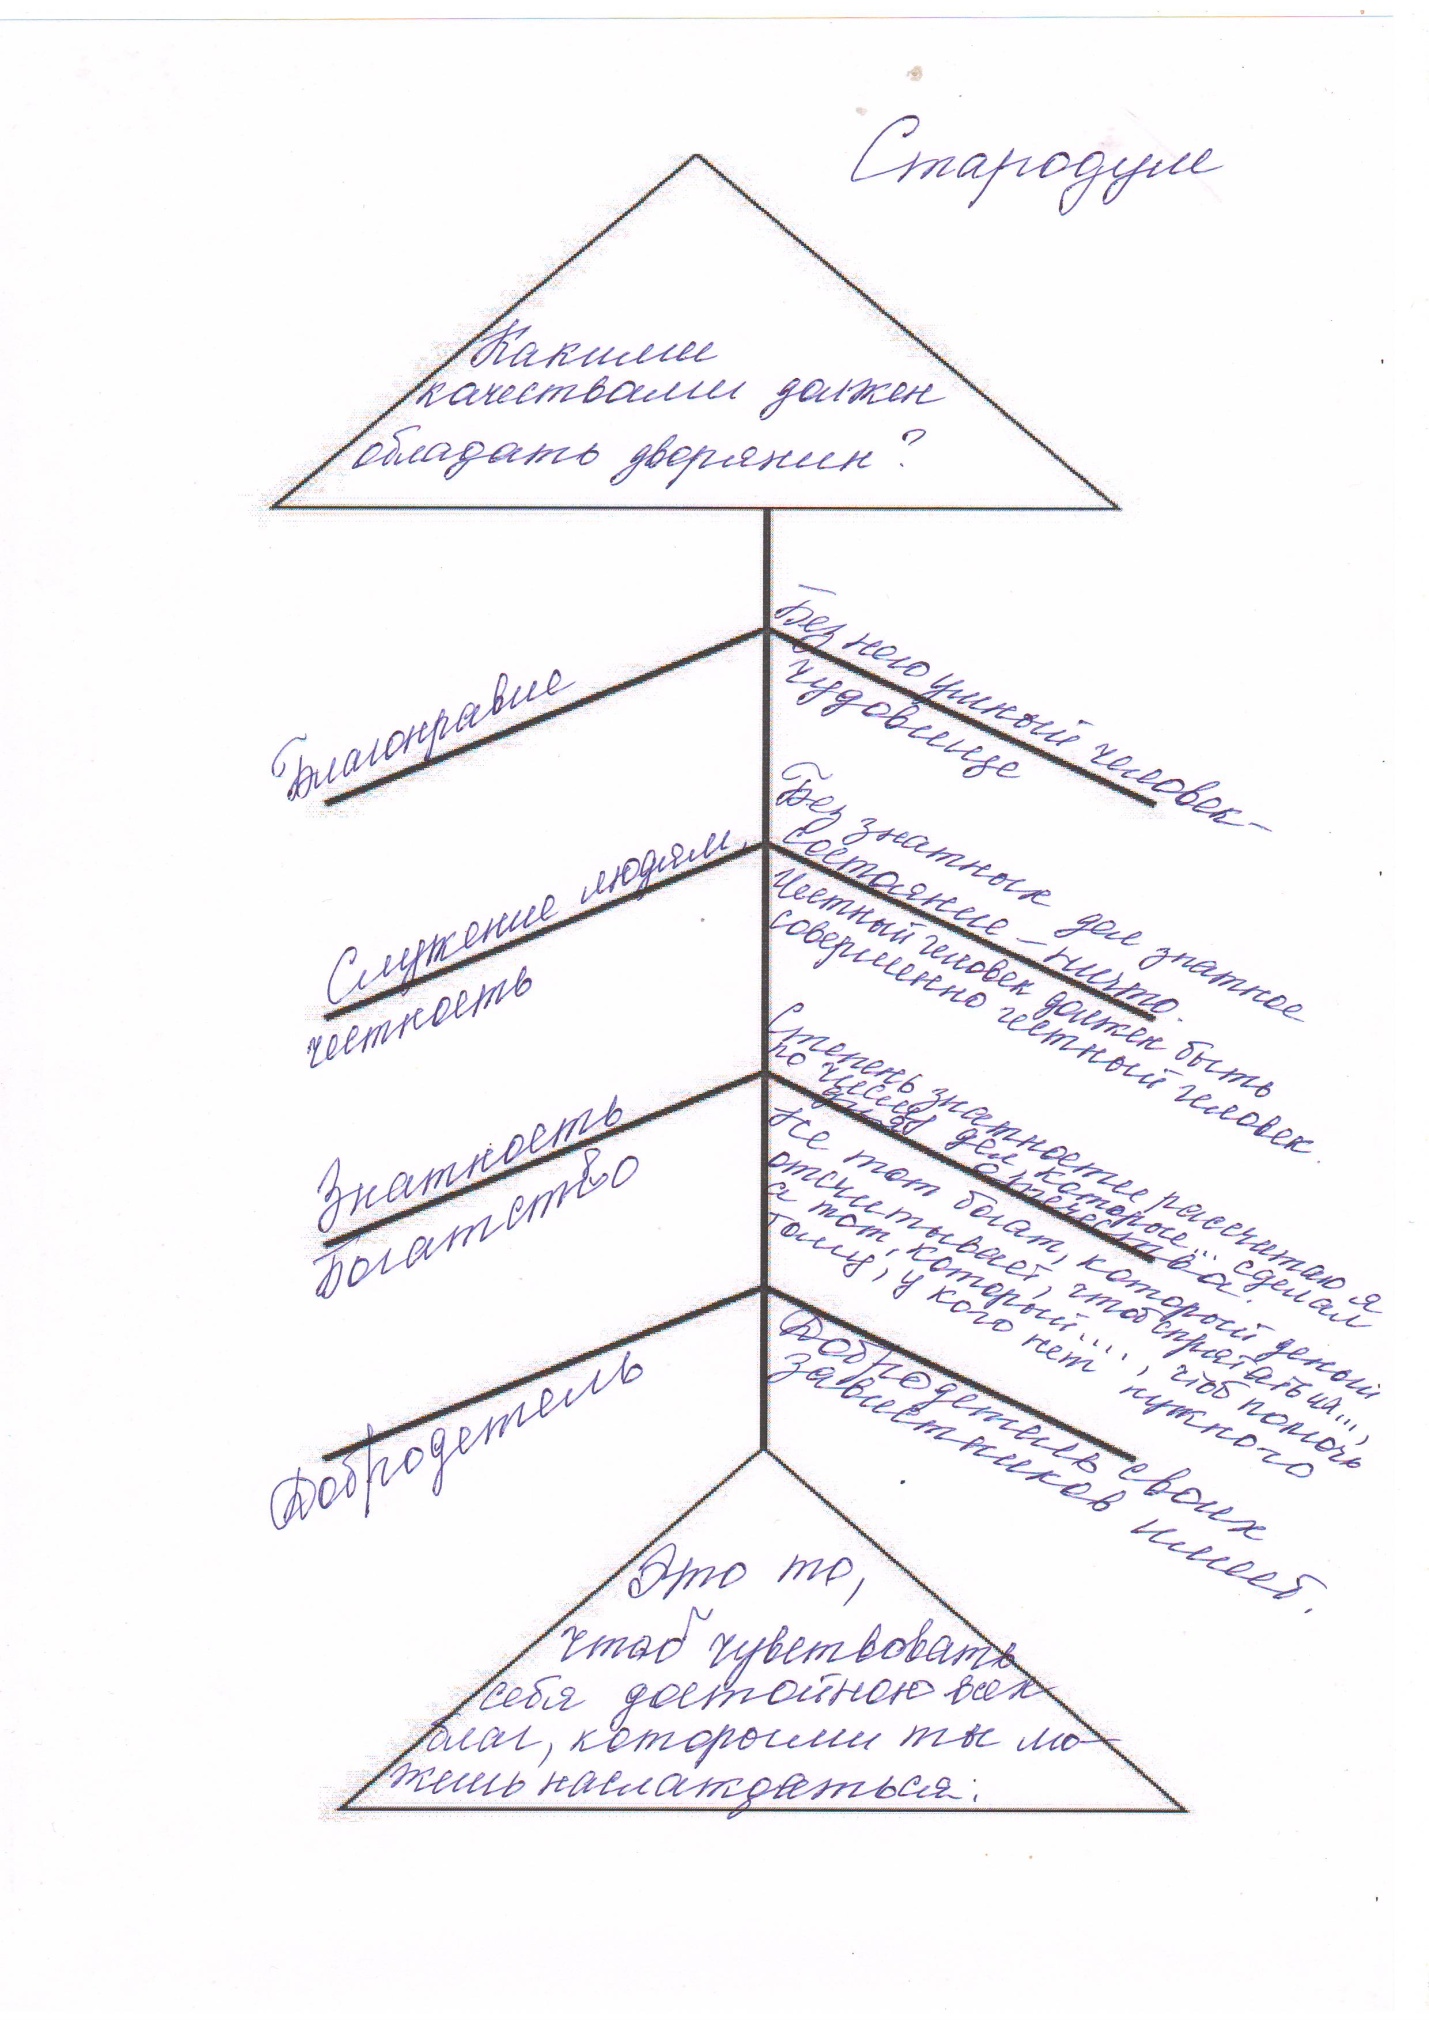 Стародум
Какими
качествами должен
обладать дворянин?
Благонравие
Без него умный человек-
чудовище
Служение людям,
честность
Без знатных дел знатное
состояние - ничто.
Честный человек должен быть
совершенно честный человек.
Знатность
Богатство
Степень знатности рассчитаю я
по числу дел, которые... сделал
для отечества.
Не тот богат, который деньги
отсчитывает, чтоб спрятать их...,
а тот, который..., чтоб помочь
тому, у кого нет нужного
Добродетель
Добродетель своих
завистников имеет.
Это то,
чтоб чувствовать
себя достойною всех
благ, которыми ты мо-
жешь наслаждаться.